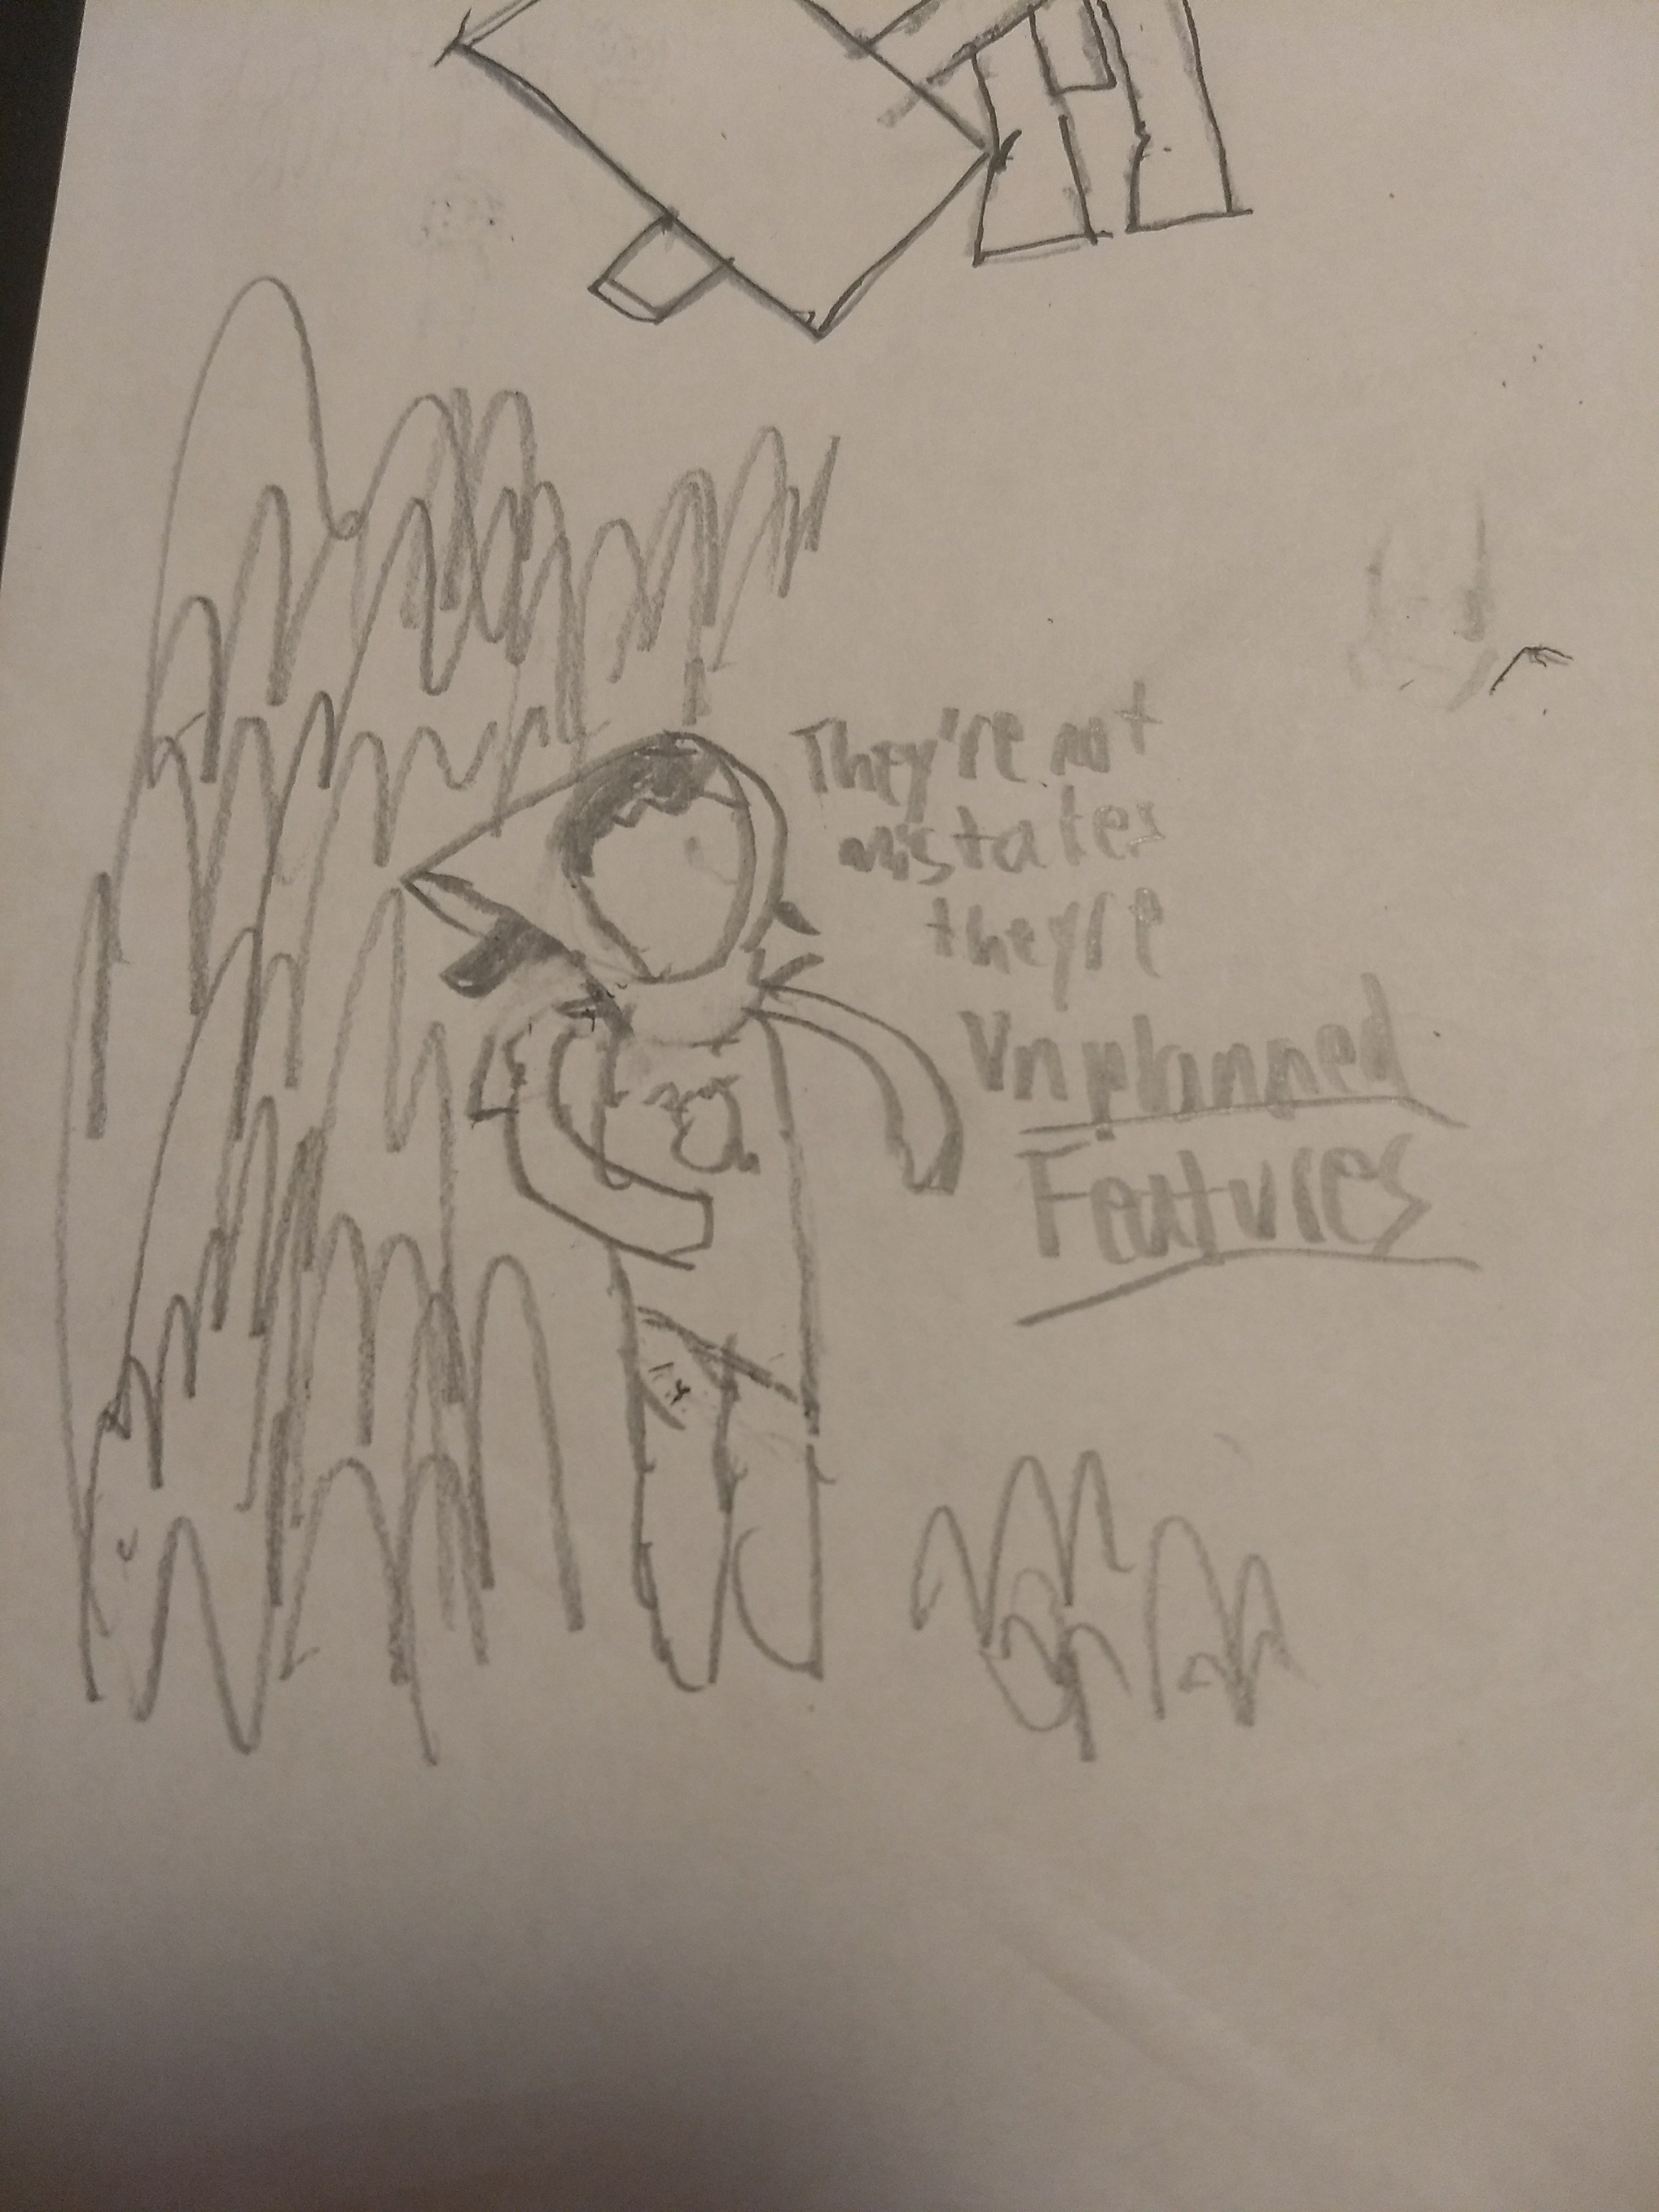 They're not
mistakes
they're
Unplanned
Features